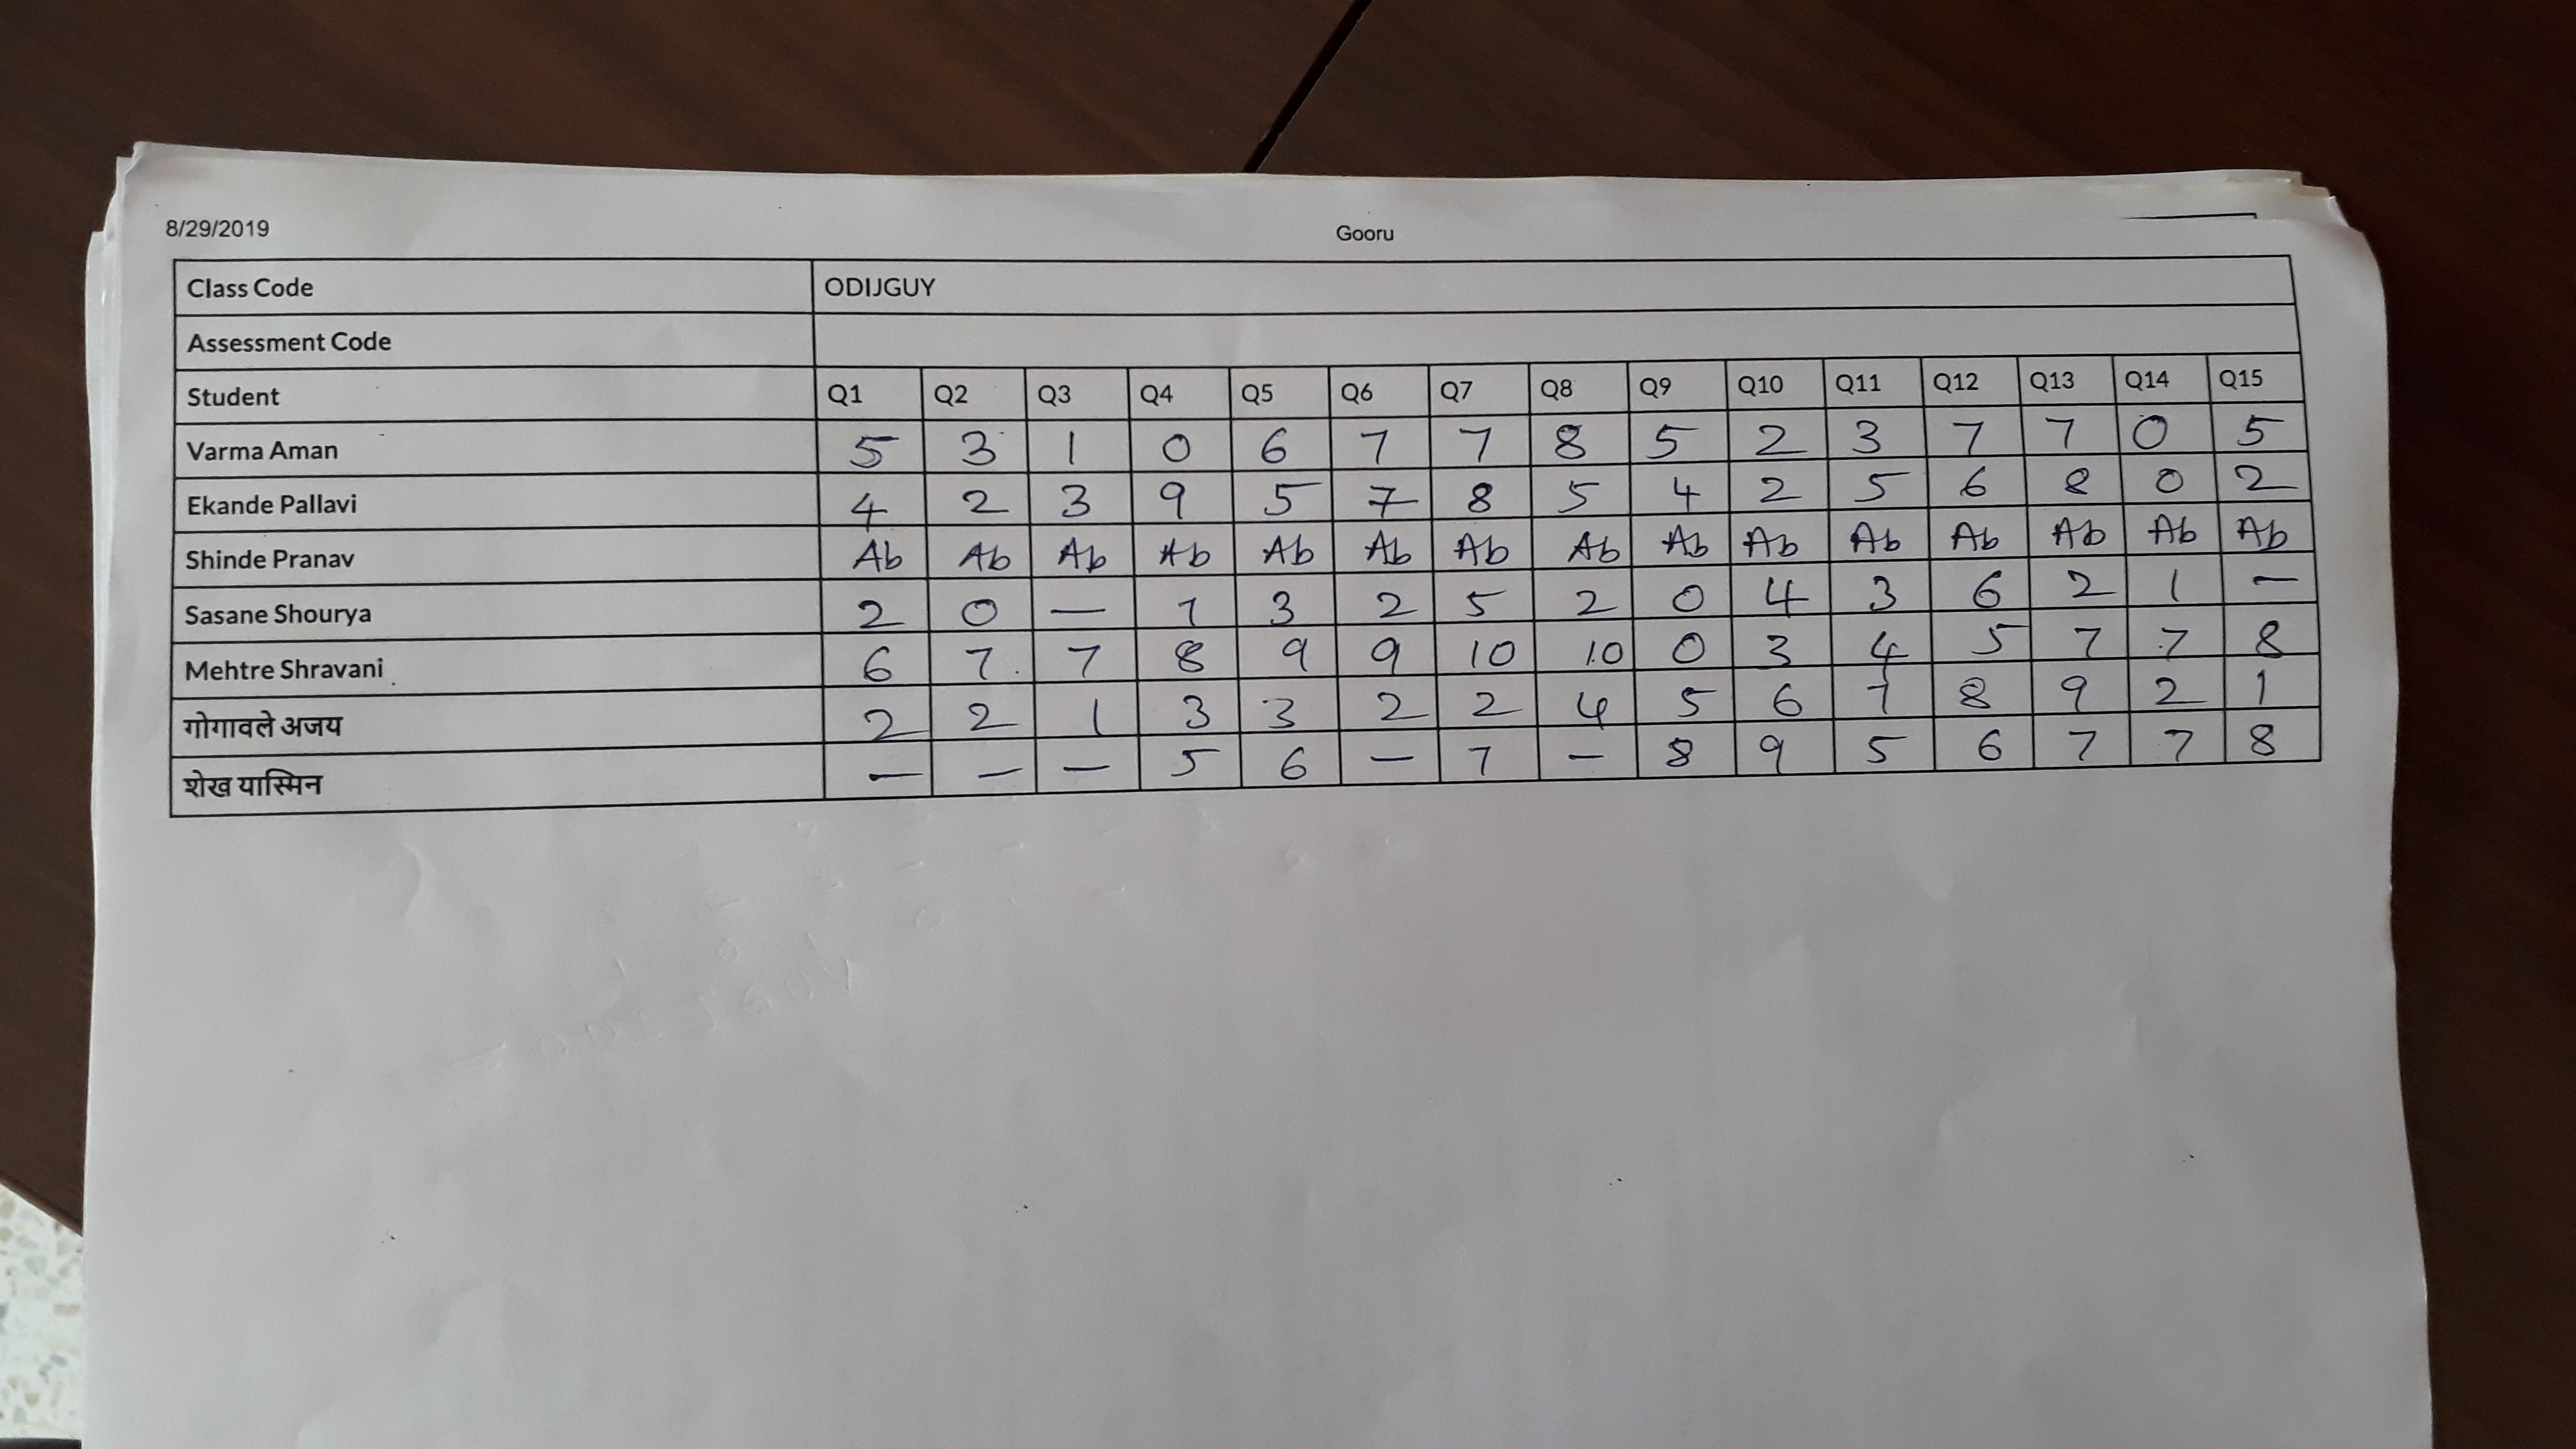 8/29/2019 Gooru
Class Code ODIJGUY
Assessment Code
Student Q1 Q2 Q3 Q4 Q5 Q6 Q7 Q8 Q9 Q10 Q11 Q12 Q13 Q14 Q15
Varma Aman 5 3 1 0 6 7 7 8 5 2 3 7 7 0 5
Ekande Pallavi 4 2 3 9 5 7 8 5 4 2 5 6 8 0 2
Shinde Pranav Ab Ab Ab Ab Ab Ab Ab Ab Ab Ab Ab Ab Ab Ab Ab
Sasane Shourya 2 0 — 1 3 2 5 2 0 4 3 6 2 1 —
Mehtre Shravani 6 7 7 8 9 9 10 10 0 3 4 5 7 7 8
गोगावले अजय 2 2 1 3 3 2 2 4 5 6 7 8 9 2 1
शेख यास्मिन — — — 5 6 — 7 — 8 9 5 6 7 7 8